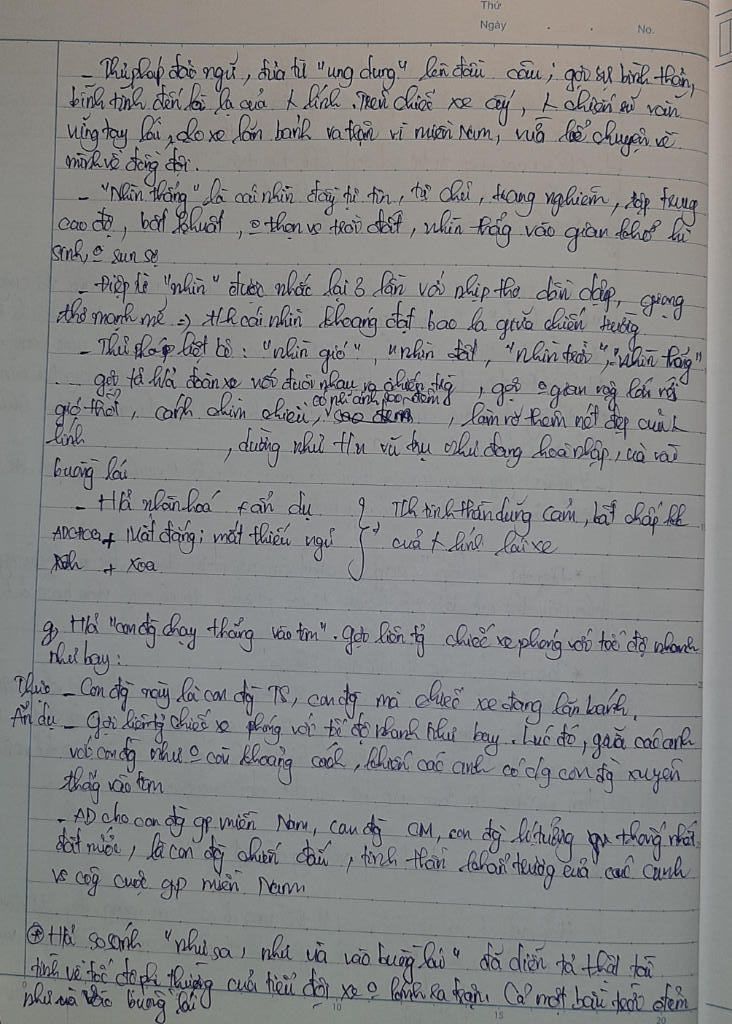 Thứ
Ngày . . No.
- Thủ pháp đảo ngữ, đưa từ "ung dung" lên đầu câu; gợi sự bình thản,
bình tĩnh đến lạ của lính. Trên chiếc xe ấy, chiến sĩ vẫn
vững tay lái, cho xe lăn bánh ra trận vì miền Nam, vừa kể chuyện về
mình về đồng đội.
- "Nhìn thẳng" là cái nhìn đầy tự tin, tự chủ, trang nghiêm, tập trung
cao độ, bất khuất, thẹn vs trời đất, nhìn thẳng vào gian khổ hi
sinh, run sợ
- Điệp từ "nhìn" được nhắc lại 3 lần với nhịp thơ dồn dập, giọng
thơ mạnh mẽ => cái nhìn khoáng đạt bao la giữa chiến trường
- Thủ pháp liệt kê: "nhìn gió", "nhìn đất", "nhìn trời", "nhìn thẳng"
... gợi tả h/ả đoàn xe với đuôi nhau ra chiến , gợi gian rộng lớn với
có h/ả ánh sao đêm
gió thổi, cánh chim chiều, , làm rõ thêm nét đẹp của
lính , dường như vũ trụ như đang hoà nhập, ùa vào
buồng lái
- H/ả nhân hoá + ẩn dụ tinh thần dũng cảm, bất chấp
+ Mắt đắng; mắt thiếu ngủ của lính lái xe
+ Xoa
H/ả "con đg chạy thẳng vào tim". gợi liên tg chiếc xe phóng với tốc độ nhanh
như bay:
Thực - Con đg này là con đg TS, con đg mà chiếc xe đang lăn bánh.
Ẩn dụ - Gợi liên tg chiếc xe phóng với tốc độ nhanh như bay. Lúc đó, giữa các anh
với con đg như còn khoảng cách, khiến các anh có c/g con đg xuyên
thẳng vào tim
- AD cho con đg gp miền Nam, con đg CM, con đg lí tưởng thống nhất
đất nước, là con đg chiến đấu, tinh thần khẩn trương của các anh
vs công cuộc gp miền Nam
* H/ả so sánh "như sa, như ùa vào buồng lái" đã diễn tả thật tài
tình về tốc độ phi thường của tiểu đội xe kính ra trận. Cả một bầu trời đêm
như ùa vào buồng lái
10 15 20